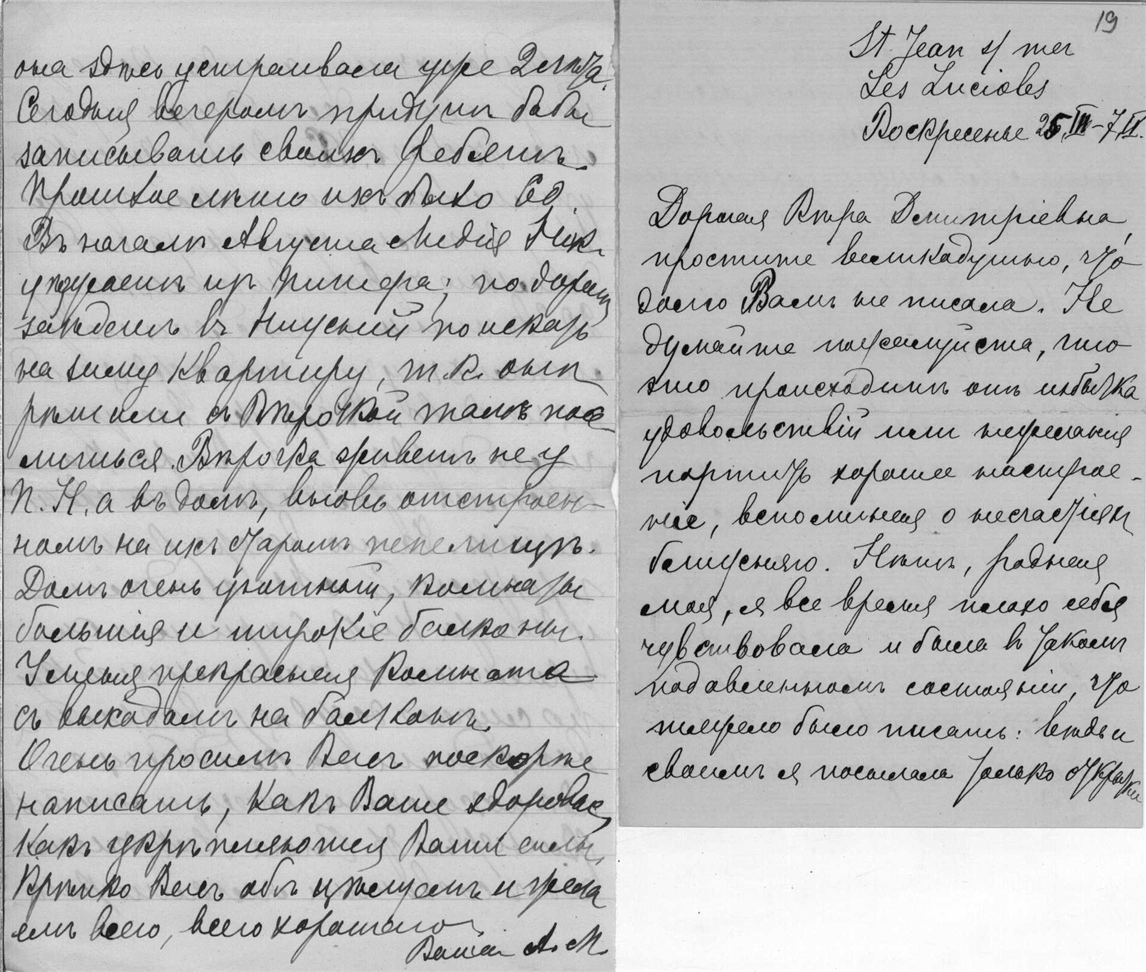 она здѣсь устраивала уже 2 лѣта.
Сегодня вечеромъ придутъ бабы
записывать своихъ ребятъ.
Прошлое лѣто ихъ было 60.
Въ началѣ Августа Лидія Ник.
уѣзжаетъ изъ Питера; по дорогѣ
заѣдетъ въ поискать
на зиму квартиру, т. к. онѣ
рѣшили съ Вѣрочкой тамъ посе-
литься. Вѣрочка живетъ не у
П. Н. а въ домѣ, вновь отстроен-
номъ на ихъ старомъ пепелищѣ.
Домъ очень уютный, комнаты
большія и широкіе балконы.
У меня прекрасная комната
съ выходомъ на балконъ.
Очень просимъ Васъ поскорѣе
написать, какъ Ваше здоровье,
какъ укрѣпляются Ваши силы.
Крѣпко Васъ обѣ цѣлуемъ и жела
емъ всего, всего хорошаго.
Ваша А. М.
19
St. Jean s/ mer
Les Lucioles
Воскресенье 25.III–7.IV.
Дорогая Вѣра Дмитріевна,
простите великодушно, что
долго Вамъ не писала. Не
думайте пожалуйста, что
это происходитъ отъ избытка
удовольствій или нежеланія
портить хорошее настрое-
ніе, вспоминая о несчастіяхъ
ближняго. Нѣтъ, родная
моя, я все время плохо себя
чувствовала и была въ такомъ
подавленномъ состояніи, что
тяжело было писать: вѣдь и
своимъ я посылала только открытки